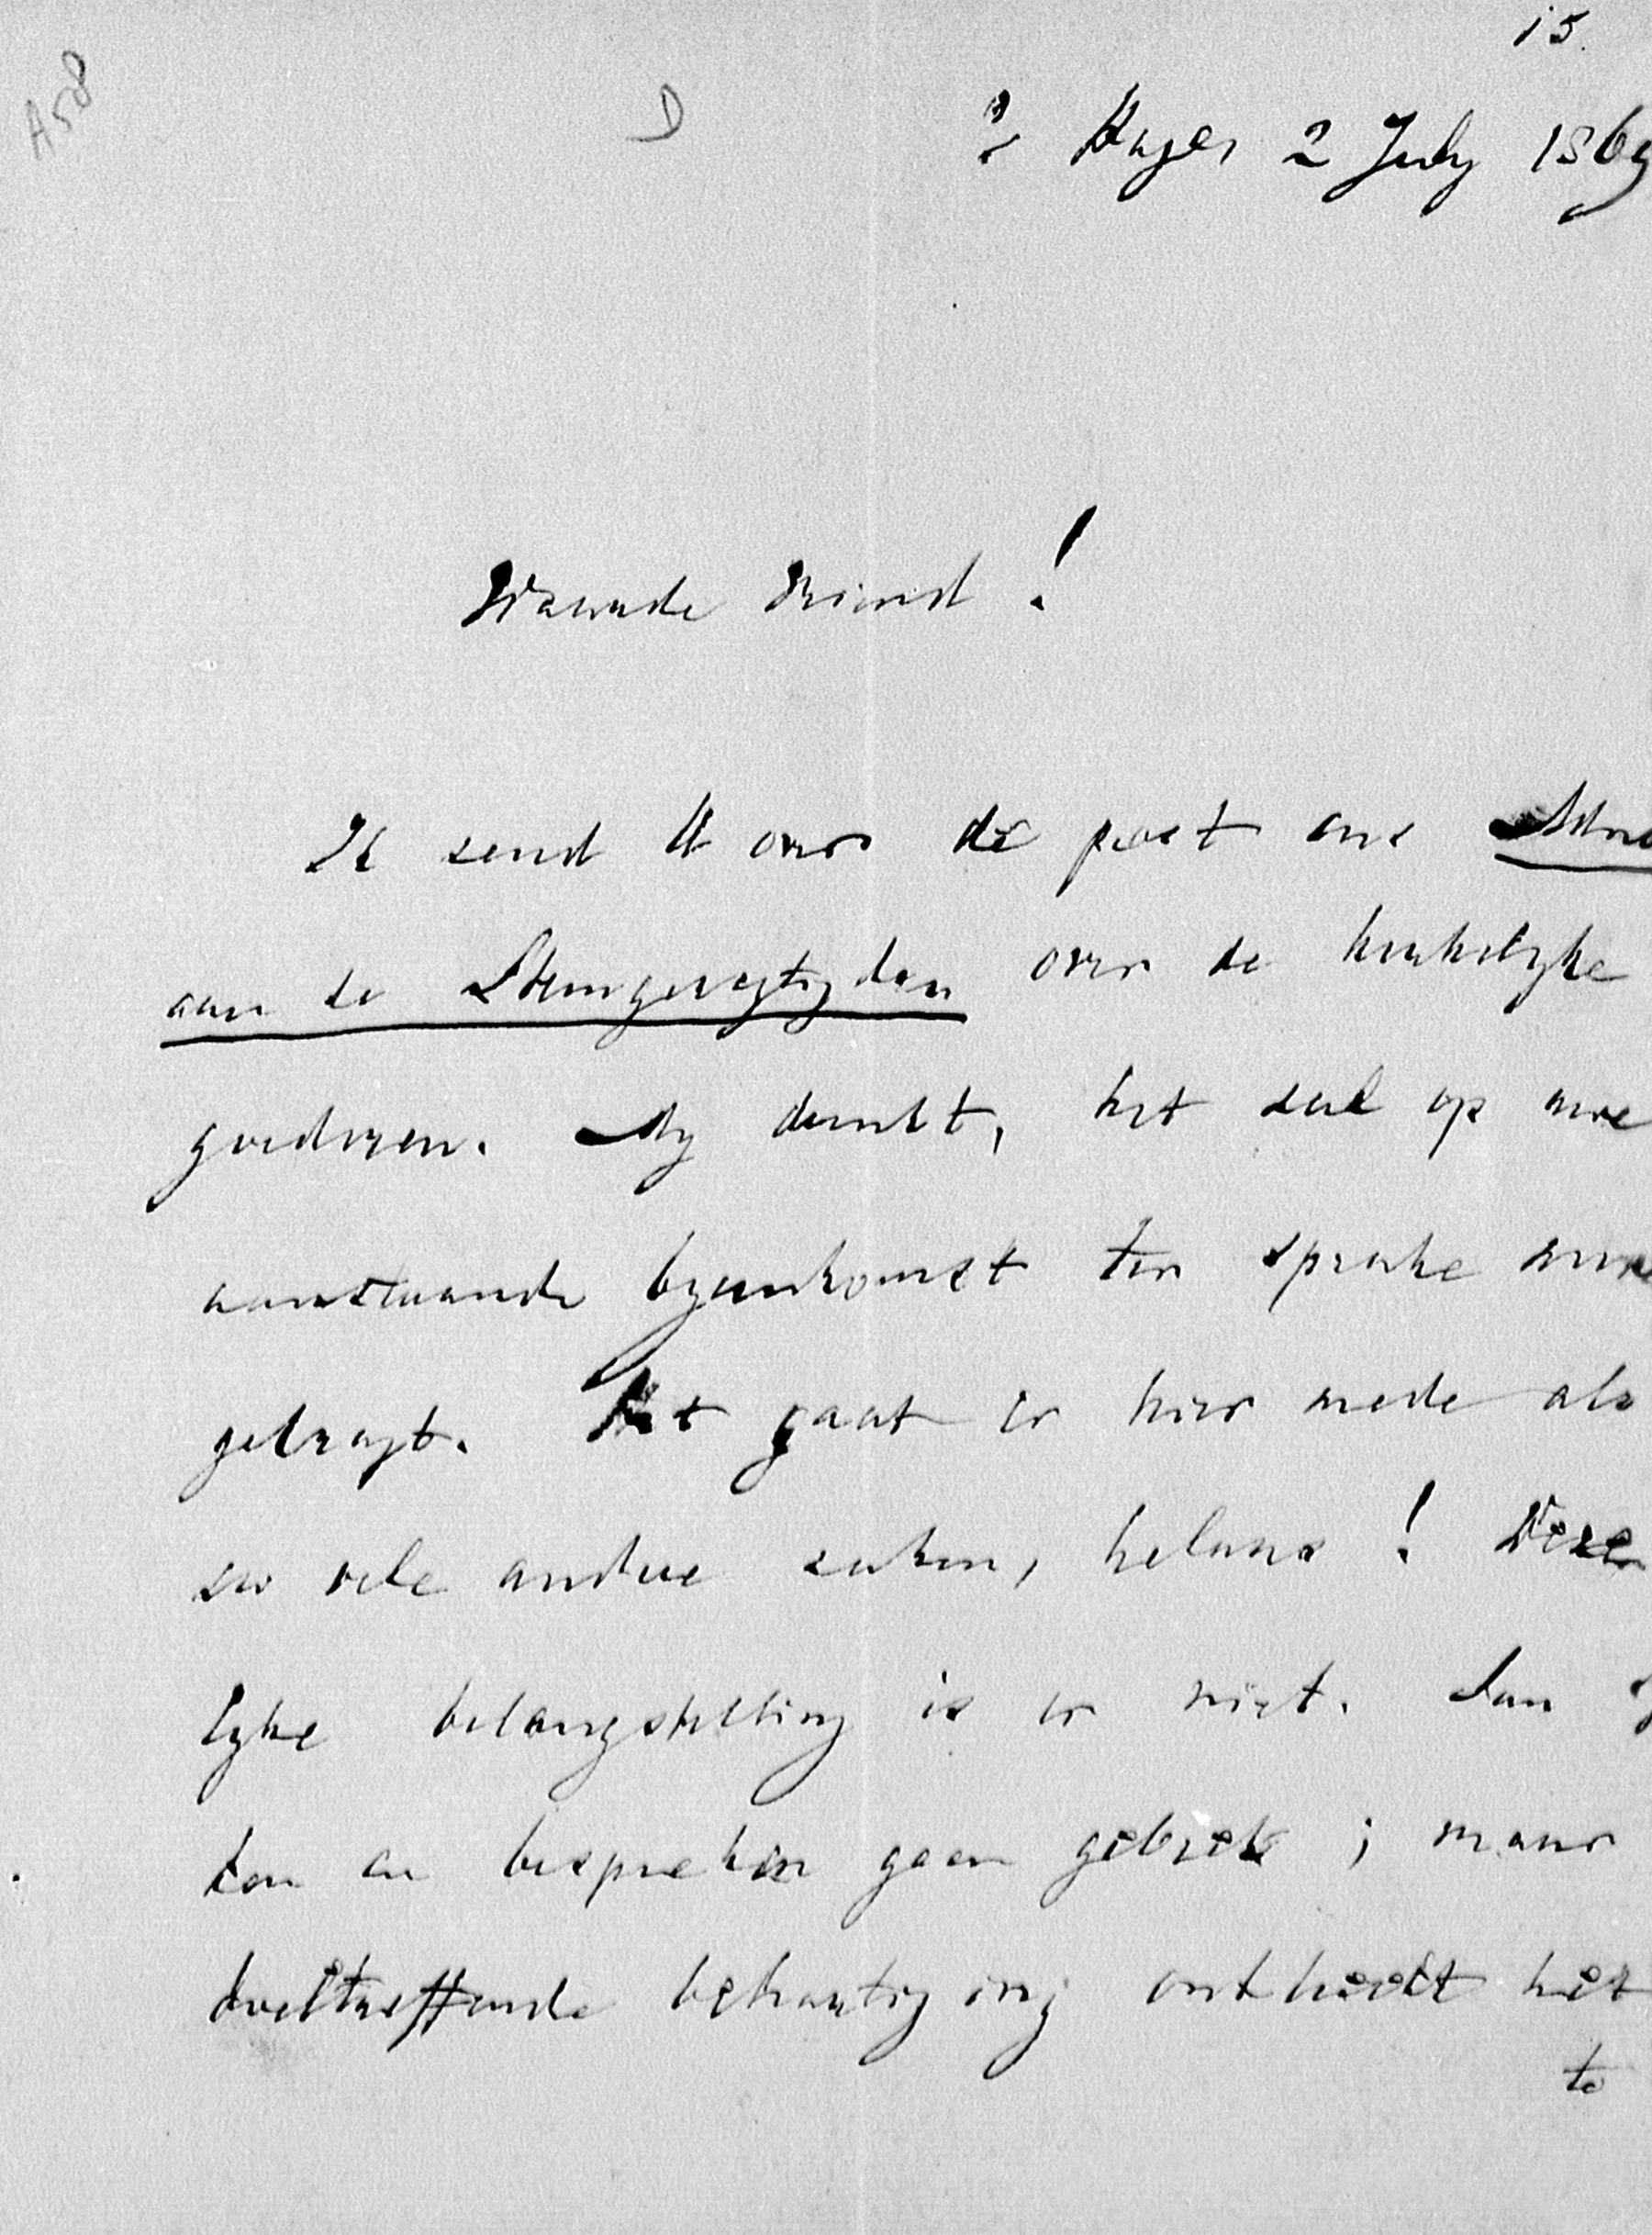 15.
A58
D
's Hage, 2 July 1869
Waarde Vriend!
Ik zend U over de post ons
aan de Stemgeregtigden over de kerkelyke
goederen. My dunkt, het zal op uwe
aanstaande byeenkomst ter sprake
gebragt. Het gaat er hier mede als
zoo vele andere zaken, helaas!
lyke belangstelling is er niet. Aan
ten en bespreken geen gebrek; maar
doeltreffende behartiging ontbreekt het
te